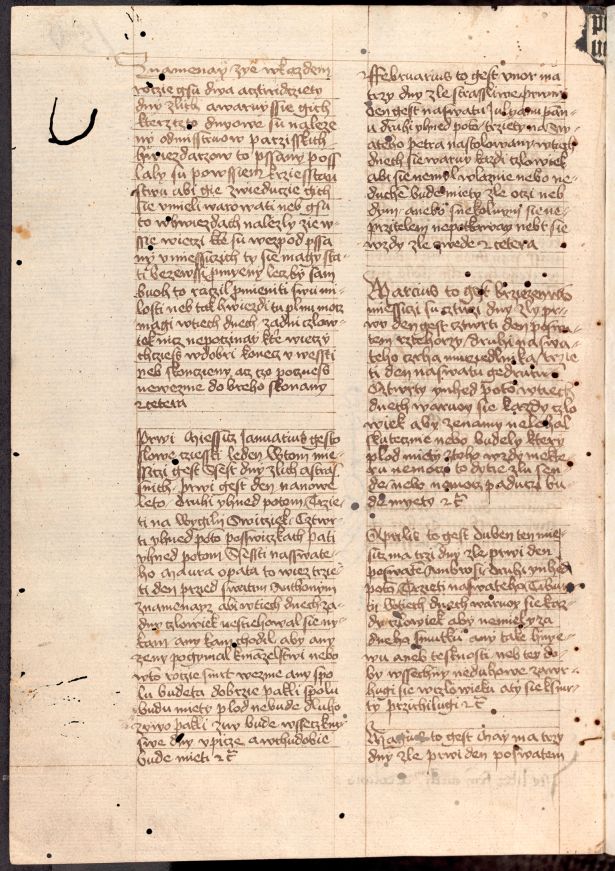 Znamenay zye wkazdem
rocze gsu dwa adtrzidczety
dny zlich awaruyssie gich
kterzeto dnyowe su naleze
ny odmistruow parzisskich
hwiezdarzow to pssany poss
laly su powssiem krziesstian
stwu abi gie zwieducze gich
sie umieli warowati neb gsu
to whwiezdach nalezly zie w
sse wieczi kte su wezpod pssa
ny umiessiczich ty sie magy sta
ti bezewssi pmyeny leczby sam
buoh to raczil pmieniti swu mi
losti neb tak hwiezdi tu plnu mocz
magi wtiech dnech zadni czlow
iek nicz nepoczinay kte wieczy
chczess wdobri konecz uwessti
neb skonczieny acz czo poczness
newezme dobreho skonany
etcetera
Prwi Miessicz Januarius gesto
slowe czieski leden Wtom mie
ssiczi gest Sest dny zlich astra
snich Prwi gest den nanowe
leto Druhi yhned potom Trzie
ti na wygilii Swiczziek Cztwr
ti yhned poto poswiczkach pati
yhned potom Sessti nasswate
ho Maura opata to wiez trzie
ti den przed swatim Anthonym
znamenayz abi wtiech dnech za
dny czlowiek nestiehowal sie ny
kam any kam chodil aby any
zeny pogymal kmazelstwi nebo
kto wtie smrt wezme any spo
lu budeta dobrzie pakli spolu
budu miety plod nebude dluho
zywo pakli zyw bude wsseczkny
swe dny upicze awchudobie
bude mieti etc
Ffebruarius to gest unor ma
trzy dny zle strassliwe prwni
den gest naswatu Julyanu pan
nu druhi yhned poto trzety na sw
ateho petra nastolowany wtiech
dnech sie waruy kazdi czlowiek
abi sie nemil wlaznie nebo ne
duchem bude miety zle oczi neb
dym anebo snekolnym sie ne
przitelem nepotkaway nebt sie
wzdy zle zwede etcetera
Marcius to gest brziezen wto
miessiczi su cztirzi dny zly pr
wy den gest cztwrti den poswa
tem rzehorzy druhi naswa
teho czrha umiedlnika trzie
ti den naswatu gedrutu
Cztwrty yhned poto wtiech
dnech waruy sie kazdy czlo
wiek aby zenamy nelehal
skuteczne nebo budely ktery
plod miety ztoho wzdy niekte
ru nemocz to dytie zlu sen
de nebo nemocz paduczi bu
de myety etc
Aprilis to gest duben ten mie
sicz ma trzi dny zle prwi den
poswate Ambrosi druhi yhned
poto Trzeti naswateho Tibur
ti wtiech dnech waruy sie kaz
dy czlowiek aby nemiel yza
dneho smutku any take hnye
wu aneb tesknosti neb tey do
by wssechny neduhowe zawr
hugi sie wczlowieku aty sie ksmr
ty przichilugi etc
Magius to gest May ma trzy
dny zle prwi den poswatem